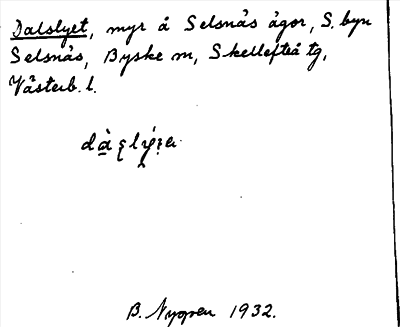 Dalslyet, myr å Selsnäs ägor, S. byn
Selsnäs, Byske sn, Skellefteå tg,
Västerb. l.
B. Nygren 1932.